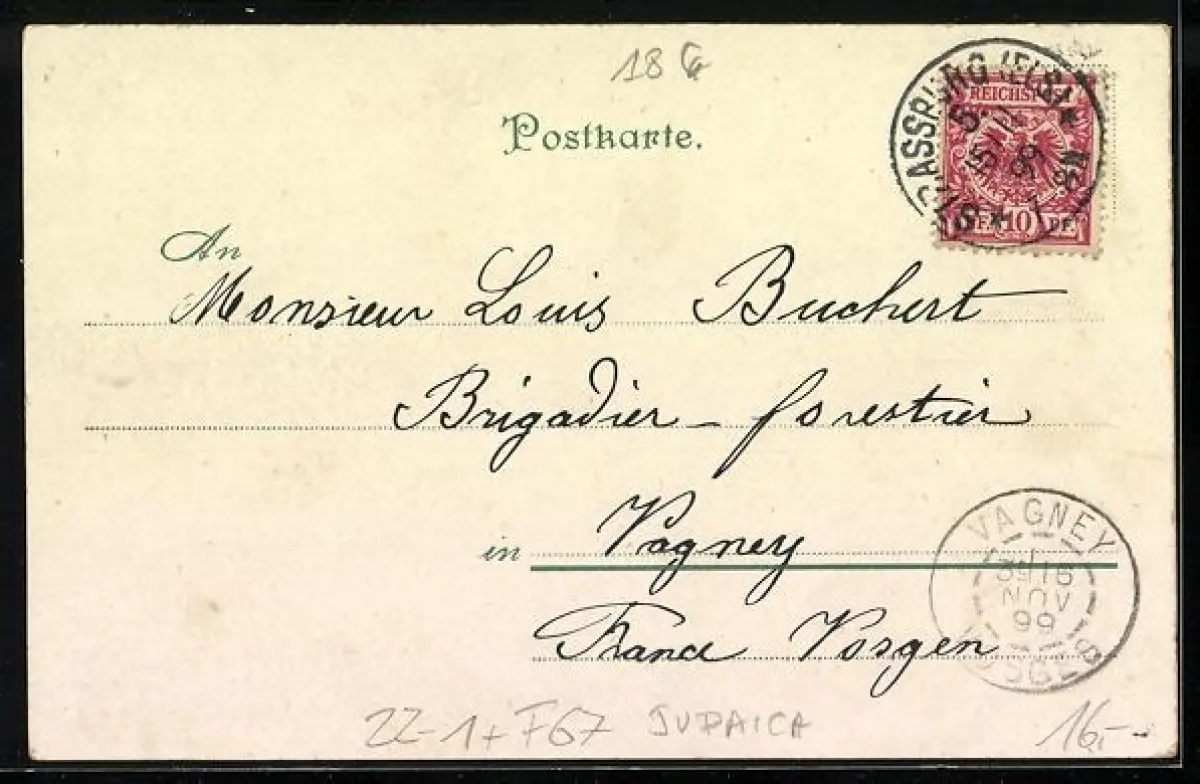 18
Postkarte.
STRASSBURG (ELS)
5.
15/11
99
7-8N
REICHSPOST
10 PF.
An
Monsieur Louis Buchert
Brigadier - forestier
in Vagney
France Vosgen
VAGNEY
16
NOV
99
VOSGES
ZZ-1+F67 JUDAICA
16,-